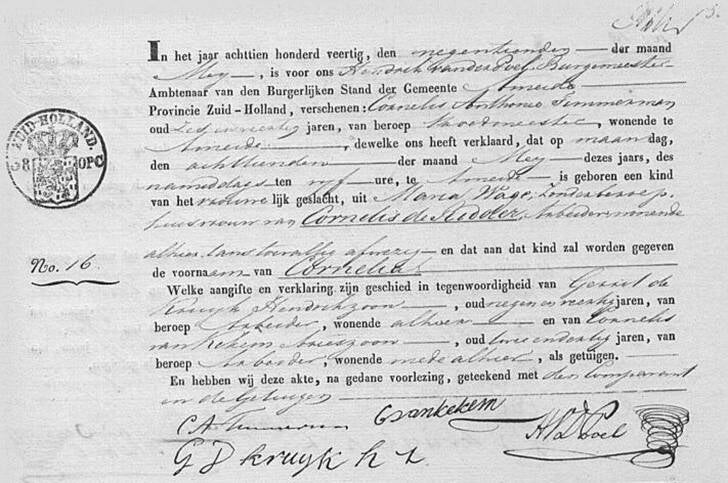 In het jaar achttien honderd veertig, den negentienden der maand
Mey, is voor ons Hendrik van der Poel Burgemeester
Ambtenaar van den Burgerlijken Stand der Gemeente Ameide
Provincie Zuid-Holland, verschenen: Cornelis Anthonie Timmerman
oud zes en veertig jaren, van beroep Vroedmeester, wonende te
Ameide, dewelke ons heeft verklaard, dat op maandag,
den achttienden der maand Mey dezes jaars, des
namiddags ten vyf ure, te Ameide is geboren een kind
van het vrouwelijk geslacht, uit Maria Wage, Zonder beroep,
huisvrouw van Cornelis de Ridder, Arbeider, wonende
alhier, thans toevallig afwezig en dat aan dat kind zal worden gegeven
de voornaam van Cornelia
Welke aangifte en verklaring zijn geschied in tegenwoordigheid van Gerrit de
Kruyk Hendrikzoon, oud negen en veertig jaren, van
beroep Arbeider, wonende alhier en van Cornelis
van Kekem Arieszoon, oud twee en dertig jaren, van
beroep Arbeider, wonende mede alhier, als getuigen.
En hebben wij deze akte, na gedane voorlezing, geteekend met den Comparant
en de Getuigen
ZUID-HOLLAND.
No. 16.
C A Timmerman
C van kekem
HVD Poel
G D kruyk h z